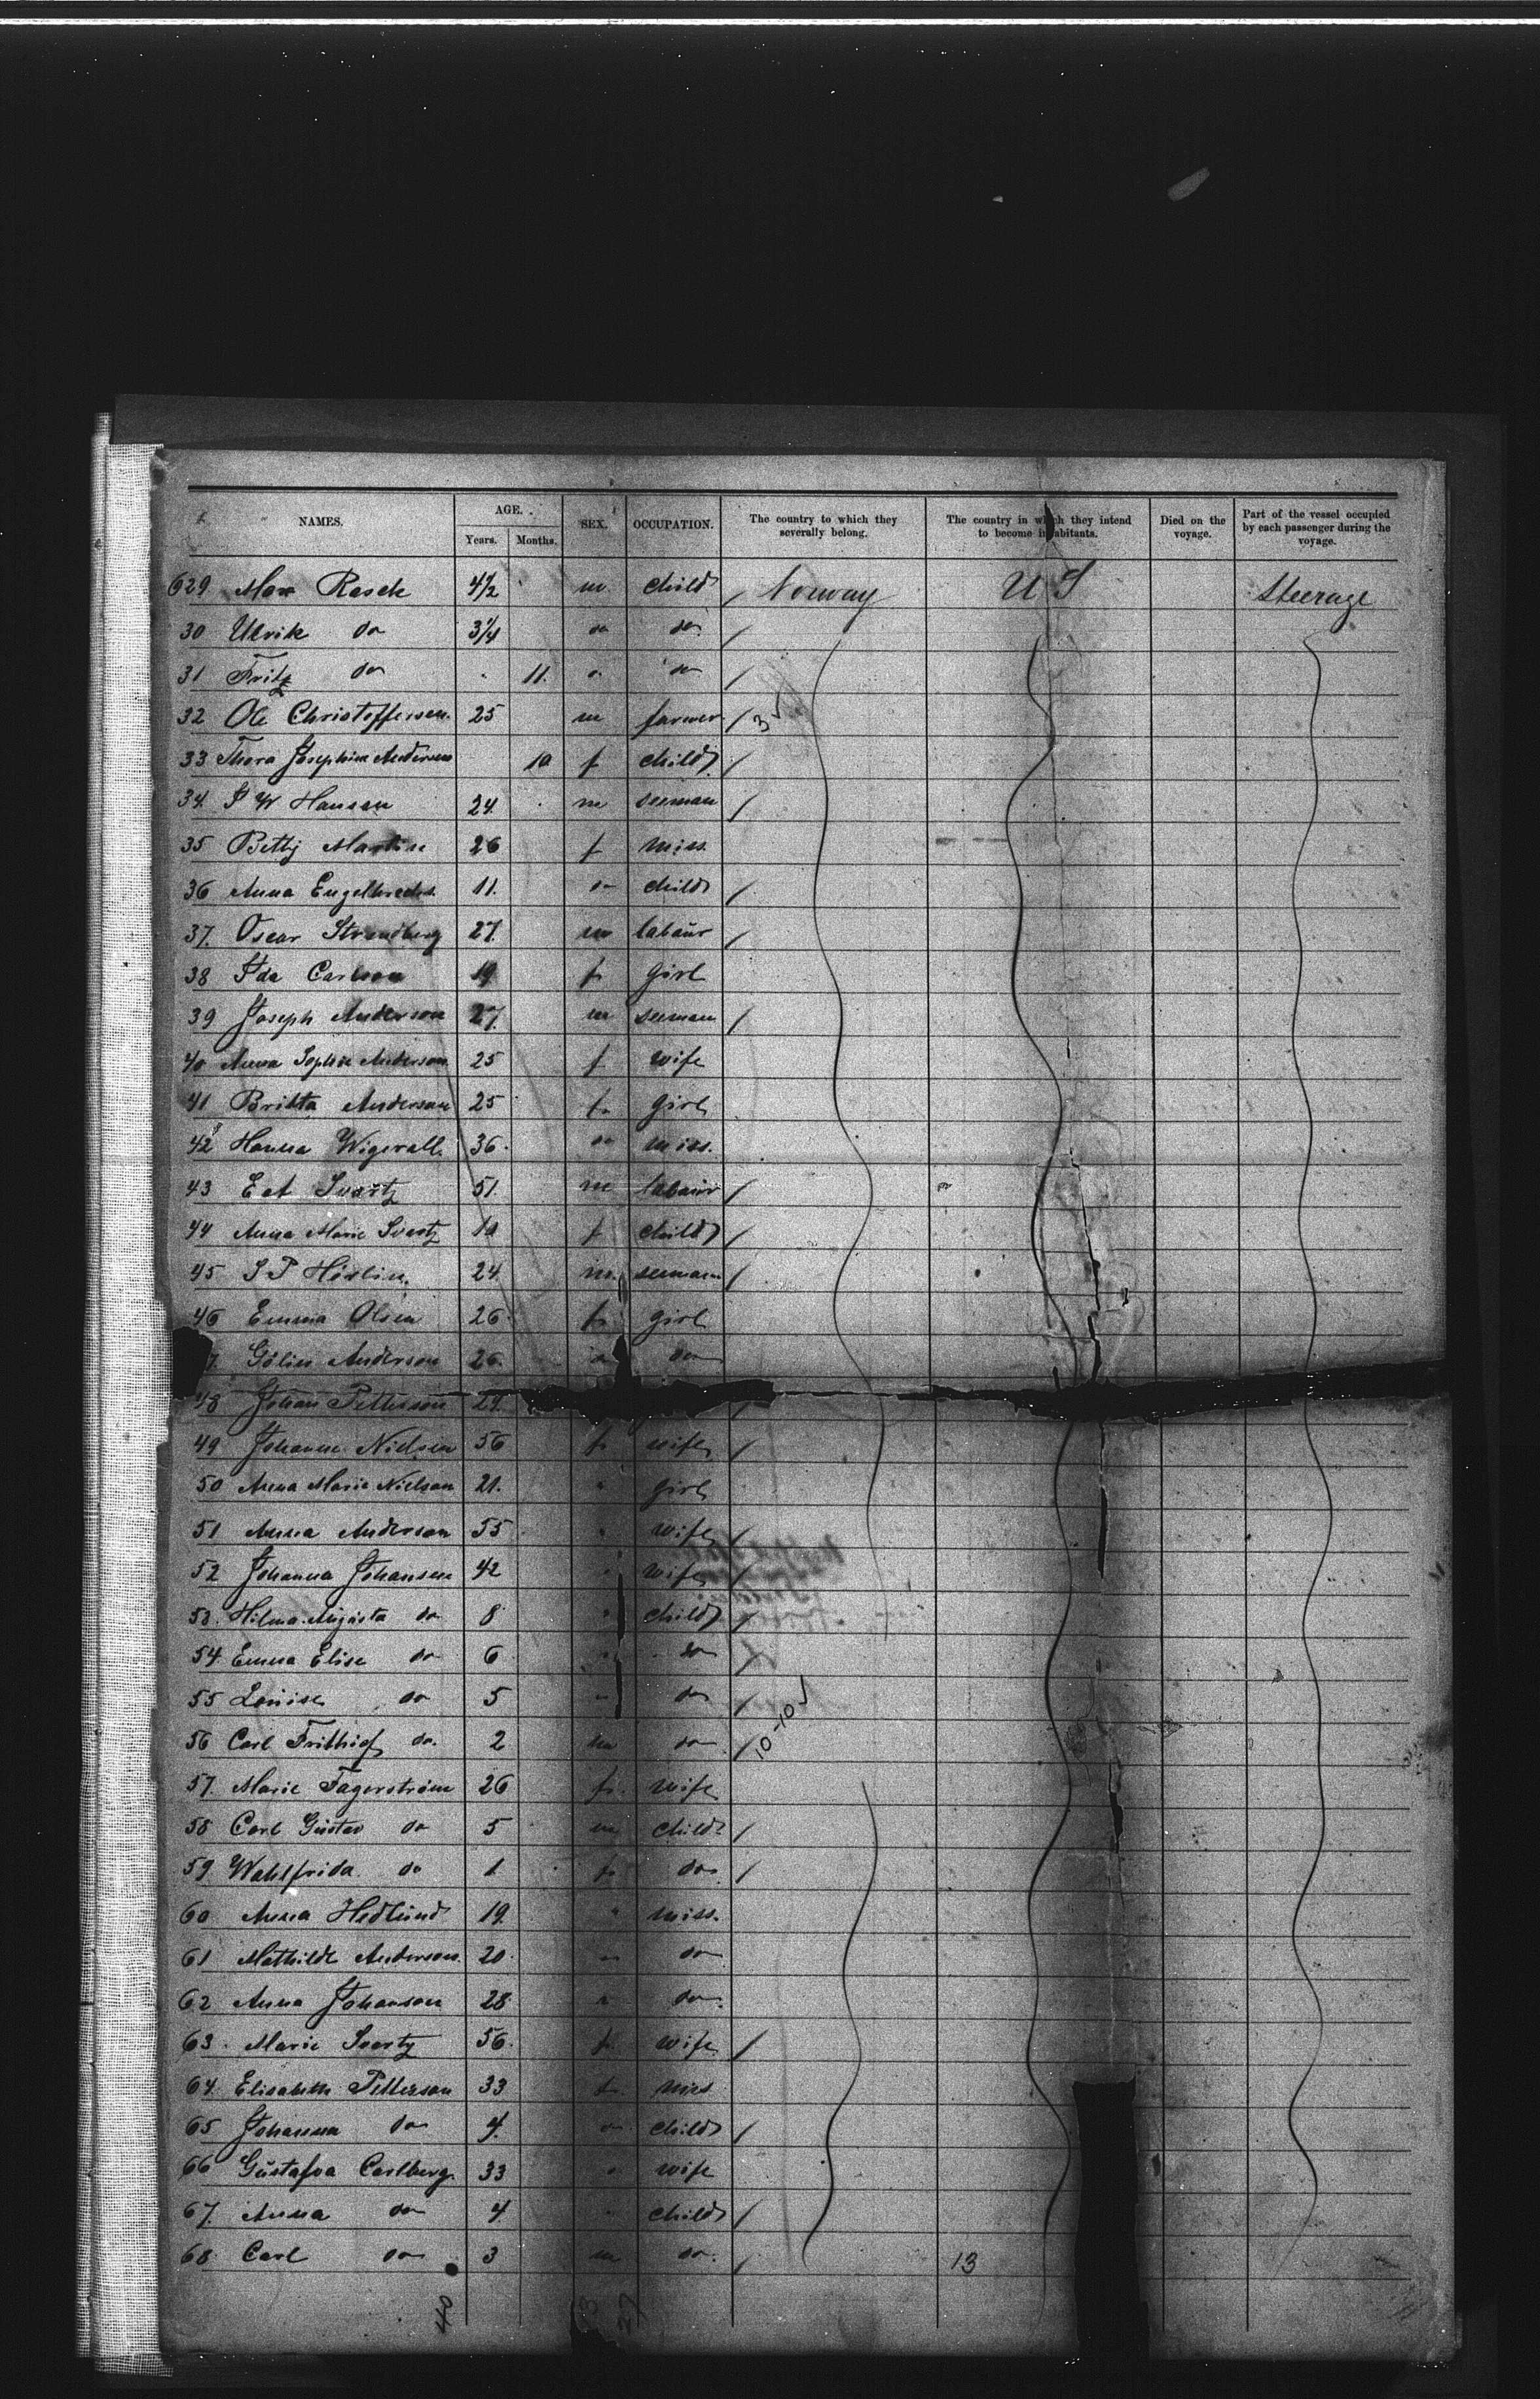 NAMES. AGE. SEX. OCCUPATION. The country to which they severally belong. The country in which they intend to become inhabitants. Died on the voyage. Part of the vessel occupied by each passenger during the voyage.
Years. Months.
629 Rasch 4½ m child / Norway U S Steerage
30 Ulrik do 3¼ do do /
31 Fritz do 11. do /
32 Ole Christoffersen. 25 m farmer / 3 ✓
33 Thora Josephine Andersen 10 f child /
34 W Hansen 24 m seeman /
35 Betty Martine 26 f miss
36 Anna Engelbrechts. 11. do child /
37. Oscar Strandberg 27. m laboür /
38 Ida Carlson 19 f girl
39 Joseph Anderson 27. m seeman /
40 Anna Sophie Anderson 25 f wife
41 Britta Anderson 25 f girl
42 Hanna Wigerall 36. do miss.
43 E A Svartz 51. m laboür /
44 Anna Marie Svartz 10 f child /
45 24 m. seemann /
46 Emma Olsen 26. f girl
7. Anderson 26. do
48 Johan Petterson 24. /
49 Johanne Nielsen 56 f wife /
50 Anna Marie Nielson 21. " girl
51 Anna Anderson 55 " wife /
52 Johanna Johansen 42 " wife /
53. Hilma Aügüsta do 8 " child /
54 Emma Elise do 6 " do /
55 Loüise do 5 " do /
56 Carl Frithiof do. 2 m do / 10-10 ✓
57. Marie Fagerström 26 f. wife
58 Carl Güstav do 5 m child /
59 Wahlfrida do 1 f do. /
60 Anna Hedlünd 19. " miss.
61 Mathilde Anderson. 20. " do
62 Anna Johanson 28 " do.
63. Marie Svartz 56. f. wife /
64. Elisabeth Petterson 33 f. miss
65 Johanna do 4. do child /
66 Güstafva Carlberg. 33 " wife
67. Anna do 4. " child /
68. Carl do 3 m do. / 13
40 27